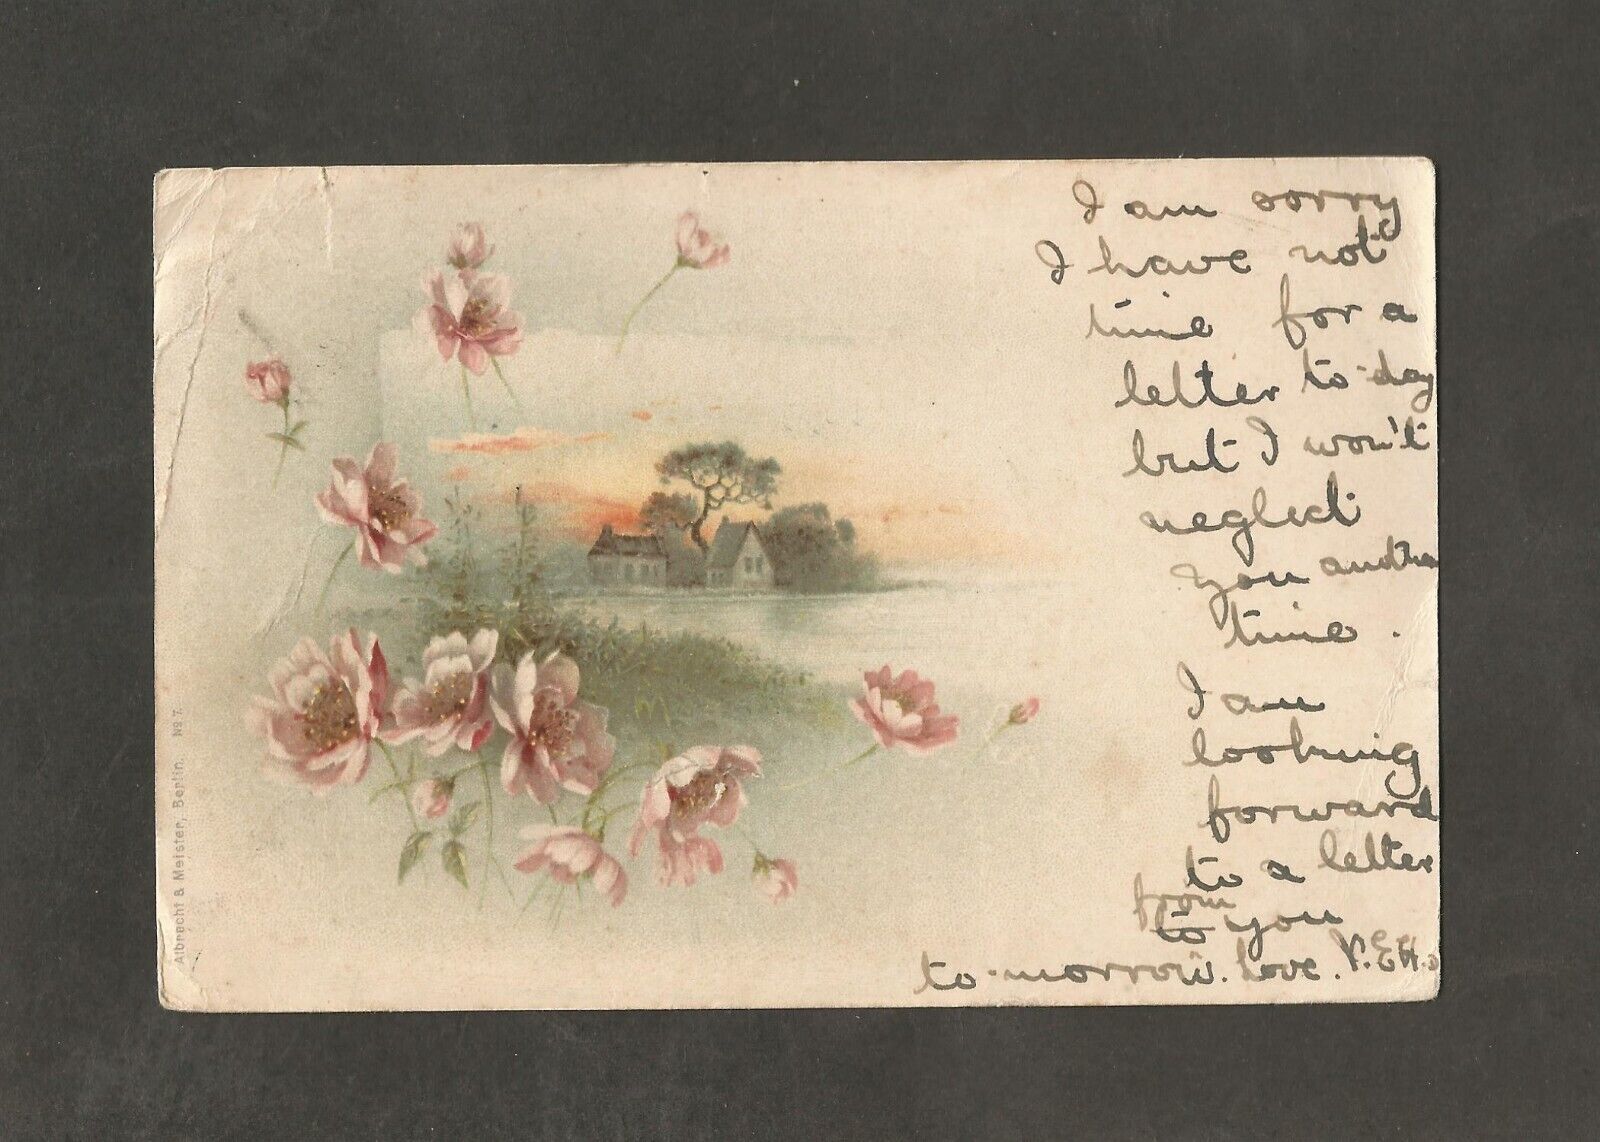 I am sorry
I have not
time for a
letter to-day
but I won't
neglect
you another
time.
I am
looking
forward
to a letter
from
to you
to-morrow. Love.
Albrecht & Meister, Berlin. No 7.